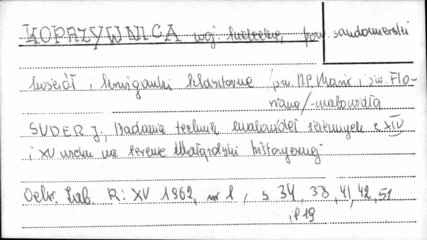 KOPRZYWNICA woj. kieleckie, pow. sandomierski
kościół i krużganki klasztorne /pw. NP Marii i św. Flo-
riana/-malowidła
SUDER J., Badania techniki malowideł ściennych z XIV
i XV wieku na terenie Małopolski historycznej
Ochr. Zab. R: XV 1962, nr 1, s 34, 38, 41, 42, 51
il 19